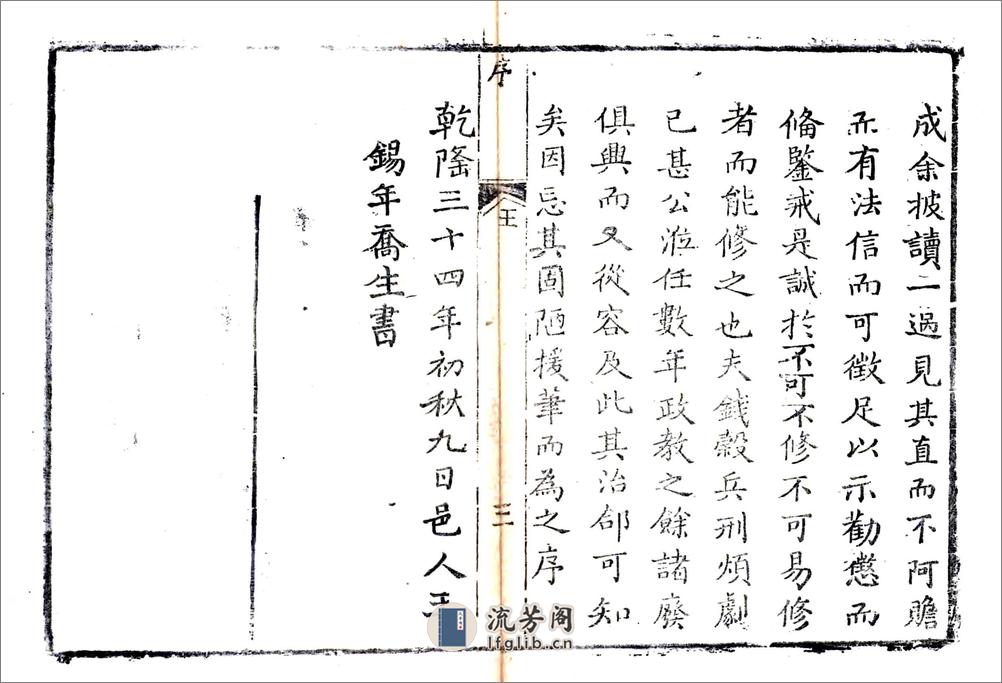 成余披讀一過見其直而不阿贍
而有法信而可徵足以示勸懲而
備鑒戒是誠於不可不修不可易修
者而能修之也夫錢穀兵刑煩劇
已甚公涖任數年政教之餘諸廢
俱興而又從容及此其治郃可知
矣因忘其固陋援筆而為之序
序
王
三
乾隆三十四年初秋九日邑人王
錫年喬生書
流芳阁
lfglib.cn